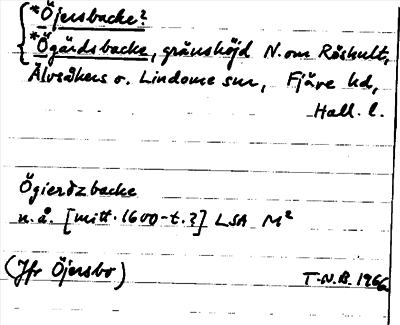 *Öjersbacke?
*Ögärdsbacke, gränshöjd N. om Röshult,
Älvsåkers o. Lindome snr, Fjäre hd,
Hall. l.
Ögierdzbacke
u.å. [mitt. 1600-t.?] LSA M²
(Jfr Öjersbo)
T.N.B. 1966.